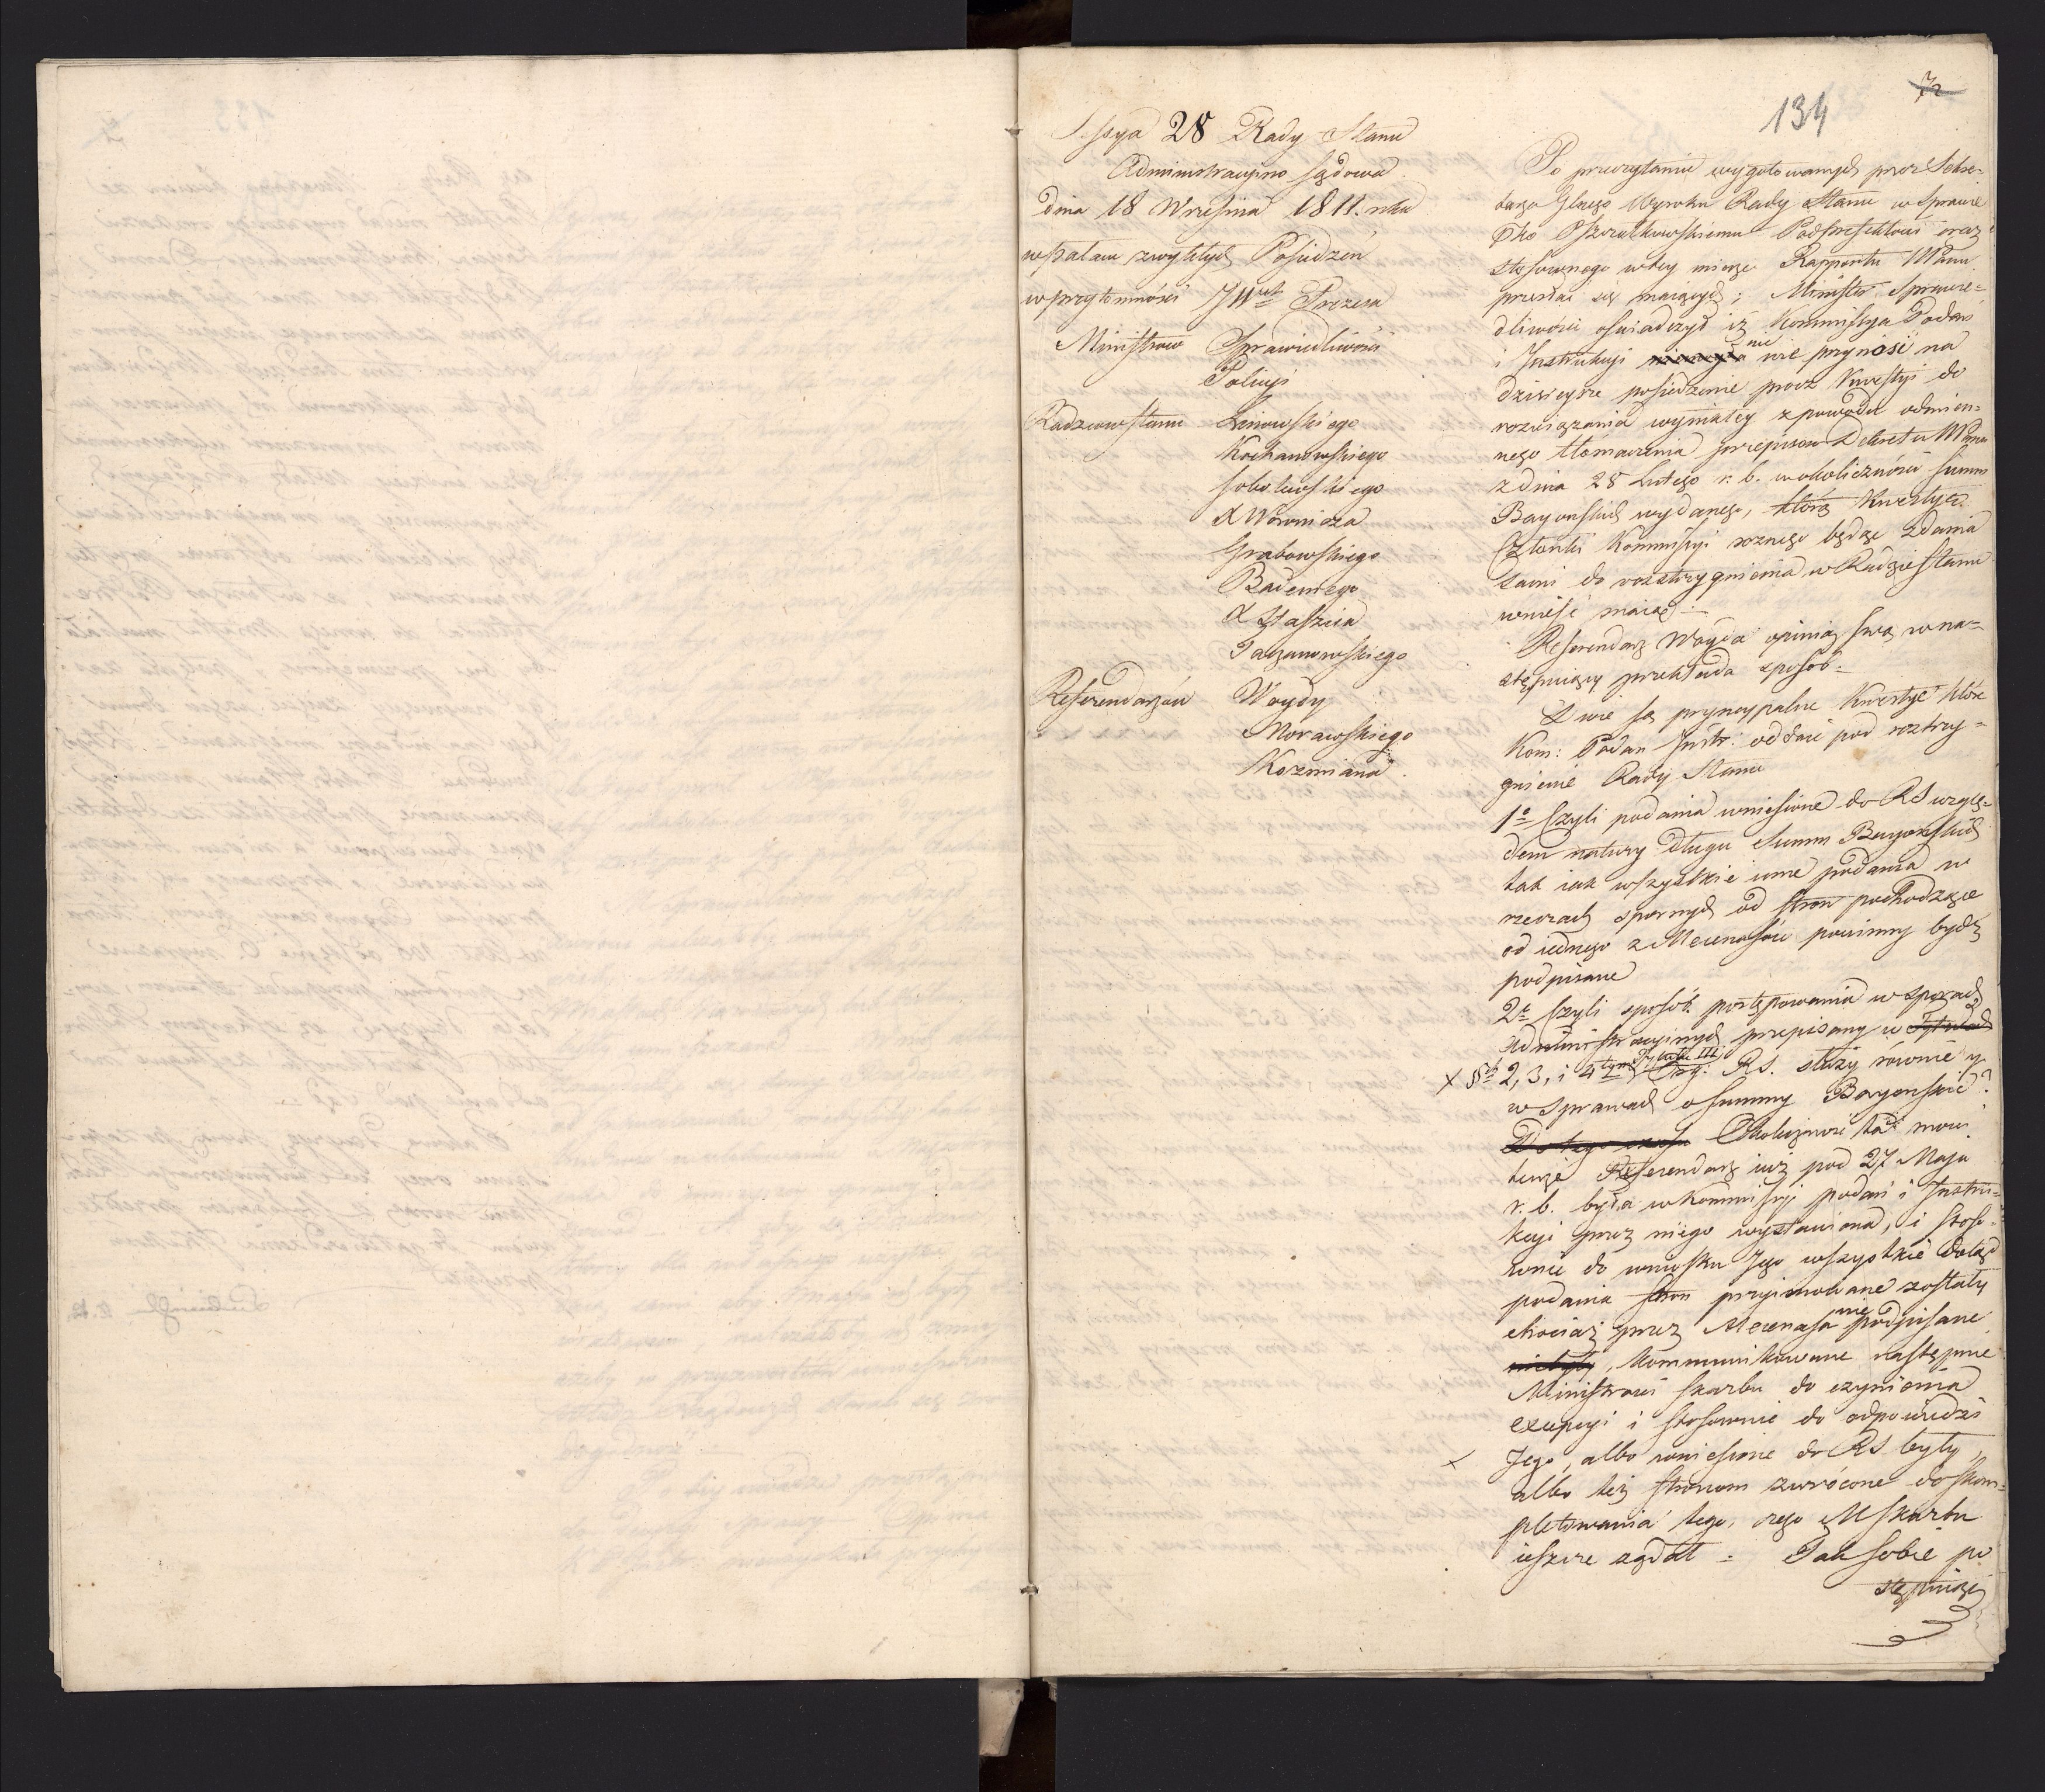 134
72
Sessya 28 Rady Stanu
Administracyino Sądowa
dnia 18 Września 1811. roku
w Pałacu zwykłych Posiedzeń
w przytomności JW Prezesa
Ministrow Sprawiedliwości
Policyi
Radzcow Stanu Linowskiego
Kochanowskiego
Sobolewskiego
X Woronicza
Grabowskiego
Badeniego
X Staszica
Taczanowskiego
Referendarzów Woydy
Morawskiego
Kozmiana
Po przeczytaniu wygotowanych przez Sekre-
tarza Glnego Wyroku Rady Stanu w Sprawie
Pko Podprefektowi oraz
stosownego w tey mierze Rapportu
przesłać się maiących; Minister Sprawie-
dliwości oświadczył iż Kommissya Podań
i Instrukcyi nic nie przynosi na
dzisieysze posiedzenie procz Kwestyi do
rozwiązania wynikłey z powodu odmien-
nego tłómaczenia przepisow Dekretu
z dnia 28 Lutego r. b. w okoliczności Summ
Bayońskich wydanego, którą Kwestyę
Członki Kommissyi rożnego będąc zdania
sami do rozstrzygnienia w Radzie Stanu
wnieść maią.
Referendarz Woyda opinią swą w na-
stępuiący przekłada sposób.
Dwie są pryncypalne Kwestye które
Kom: Podań Instr: oddaie pod roztrzy-
gnienie Rady Stanu
1o Czyli podania wniesione do RS wzglę-
dem natury długu Summ Bayońskich
tak iak wszystkie inne podania w
rzeczach spornych od stron pochodzące
od iednego z Mecenasów powinny bydź
podpisane
2o Czyli sposób postępowania w sporach
Administracyinych przepisany w Tytułach
x §§ch 2, 3, i 4tym Tytułu III Org: RS. służy równie y
w sprawach o Summy Bayońskie?
Do tego czasu Okoliczność ta mówi
tenże Referendarz iuż pod 27 Maja
r. b. była w Kommissyi podań i Instru-
kcyi przez niego wystawiona, i stoso-
wnie do wniosku Jego wszystkie dotąd
podania stron przyimowane zostały
chociaż przez Mecenasa nie podpisane
nie były, kommunikowane następnie
Ministrowi Skarbu do czynienia
excepcyi i stosownie do odpowiedzi
x Jego, albo wniesione do RS były,
albo też stronom zwrócone do skom-
pletowania tego, czego M Skarbu
ieszcze żądał. Tak sobie po
stępuiąc